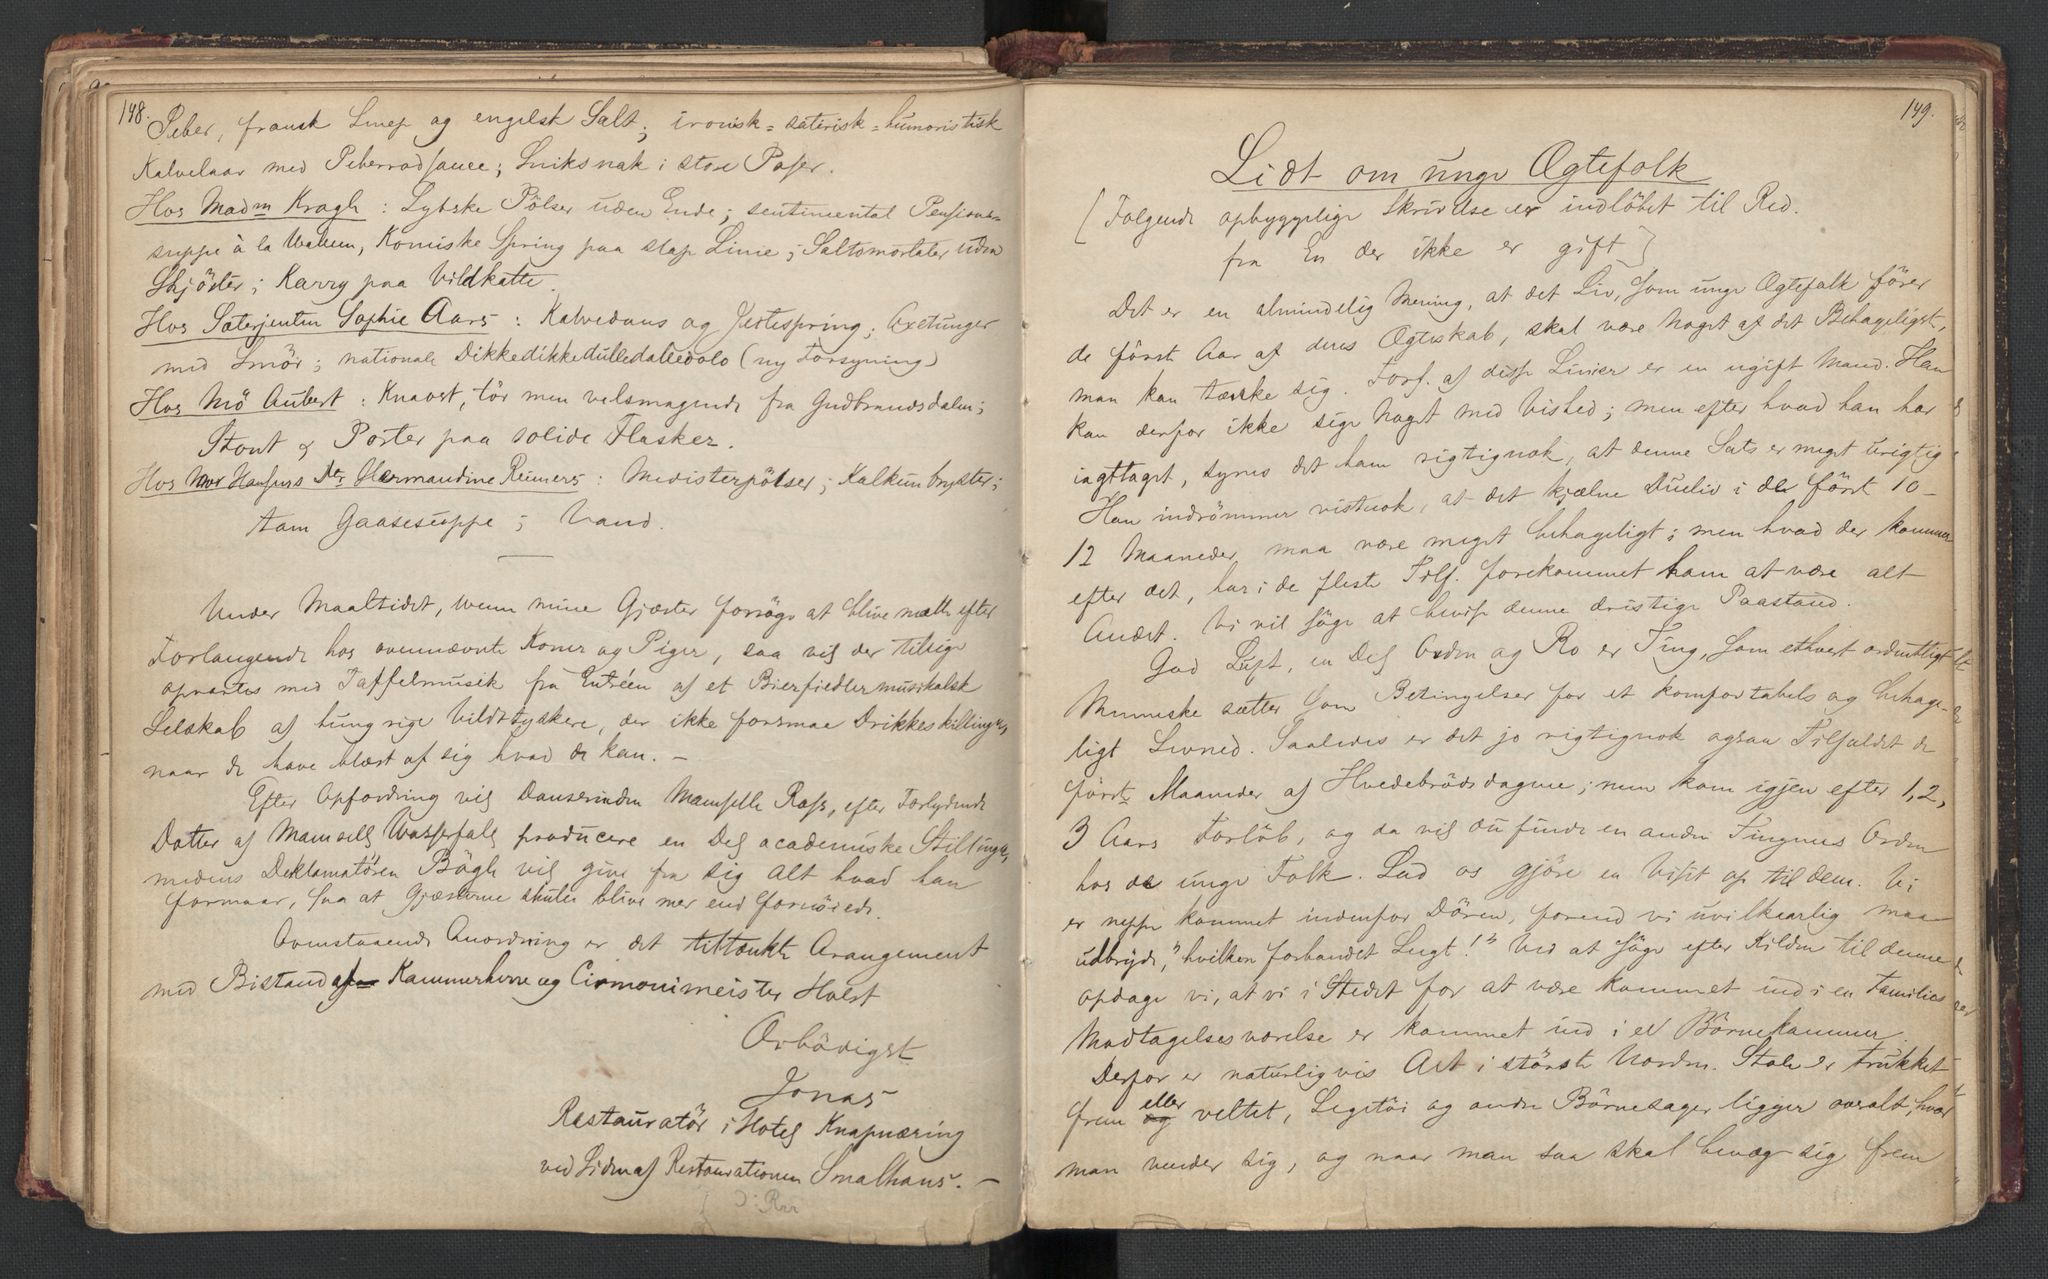 148.
Peber, fransk Senep og engelsk Salt; ironisk-saterisk-humoristisk
Kalvelaar med Peberrodsauce; Sniksnak i store Poser.
Hos Madm Kragh: Lybske Pölser uden Ende; sentimental Pensions-
suppe à la Komiske Spring paa slap Linie; Saltomortaler uden
Skjörter; Karry paa Vildkatte.
Hos Sæterjenten Sophie Aars: Kalvedans og Jentespring; Oxetunger
med Smör; nationale Dikkedikkedulledalledolo (ny Forsyning)
Hos Mö Aubert: Knaost, tör men velsmagende fra Gudbrandsdalen;
Stout & Porter paa solide Flasker.
Hos Mor Hansens Dtr Hermandine Reimers: Medisterpölser; Kalkunbryster;
tam Gaasesuppe; Vand.
Under Maaltidet, mens mine Gjæster forsöge at blive mætte efter
Forlangende hos ovennævnte Koner og Piger, saa vil der tillige
opvartes med Taffelmusik fra Entréen af et Bierfiedlermusikalsk
Selskab af hungrige Vildttydskere, der ikke forsmaa Drikkeskillinger,
naar de have blæst af sig hvad de kan. –
Efter Opfordring vil Danserinden Mamselle Rass, efter Forlydende
Datter af Mamsell Wasserfall producere en Del academiske Stillinger,
medens Deklamatören Bögh vil give fra sig Alt hvad han
formaar, saa at Gjæsterne skulle blive mer end fornöiede.
Ovenstaaende Anordning er det tiltænkte Arangement
med Bistand af Kammerherre og Cirmonimeister Holst
Ærbödigst
Jonas
Restauratör i Hotel Knapnæring
ved Siden af Restaurationen Smalhans. –
149.
Lidt om unge Ægtefolk
[Følgende opbyggelige Skrivelse er indlöbet til Red.
fra En der ikke er gift]
Det er en almindelig Mening, at det Liv, som unge Ægtefolk förer
de förste Aar af deres Ægteskab, skal være Noget af det Behageligste,
man kan tænke sig. Forf. af disse Linier er en ugift Mand. Han
kan derfor ikke sige Noget med Vished; men efter hvad han har
iagttaget, synes det ham rigtignok, at denne Sats er meget urigtig.
Han indrömmer vistnok, at det kjælne Dueliv i de först 10–
12 Maaneder, maa være meget behageligt; men hvad der kommer
efter det, har i de fleste Tilf. forekommet ham at være alt
Andet. Vi vil söge at bevise denne dristige Paastand.
God Luft, en Del Orden og Ro er Ting, som ethvert ordentligt
Menneske sætter som Betingelser for et komfortabelt og behage-
ligt Levned. Saaledes er det jo rigtignok ogsaa Tilfældet de
förste Maaneder af Hvedebrödsdagene; men kom igjen efter 1, 2,
3 Aars Forlöb, og da vil du finde en anden Tingenes Orden
hos de unge Folk. Lad os gjöre en Visit op til dem. Vi
er neppe kommet indenfor Dören, förend vi uvilkaarlig maa
udbryde, "hvilken forbandet Lugt!" Ved at söge efter Kilden til denne
opdage vi, at vi i Stedet for at være kommet ind i en Families
Modtagelsesværelse er kommet ind i et Börnekammer.
Derfor er naturligvis Alt i störste Uorden. Stole er trukket
frem og eller veltet, Legetöi og andre Börnesager ligger overalt, hvor
man vender sig, og naar man saa skal bevæge sig frem